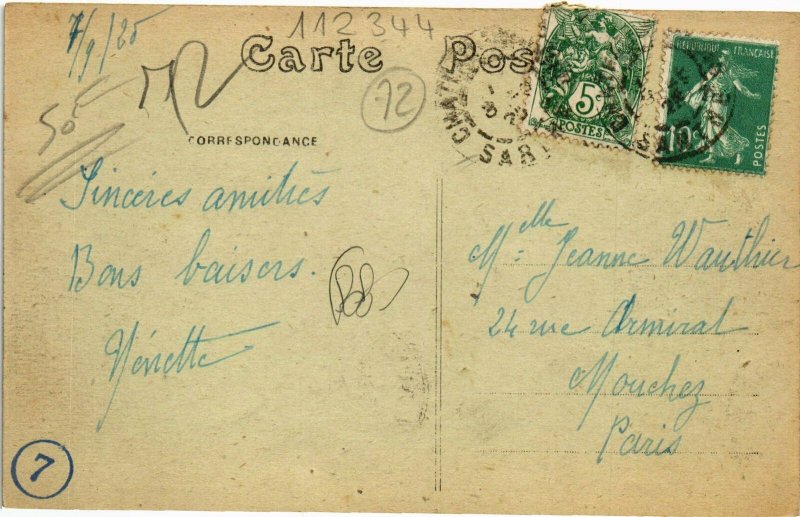 112344
7/9/25
Carte Pos
72
50
CORRESPONDANCE
5
POSTES
REPUBLIQUE FRANÇAISE
10
POSTES
CHATE
SAB
Sincères amitiés
Bons baisers.
BB
Mlle Jeanne Wauthier
24 rue Armiral
Mouchez
Paris
7